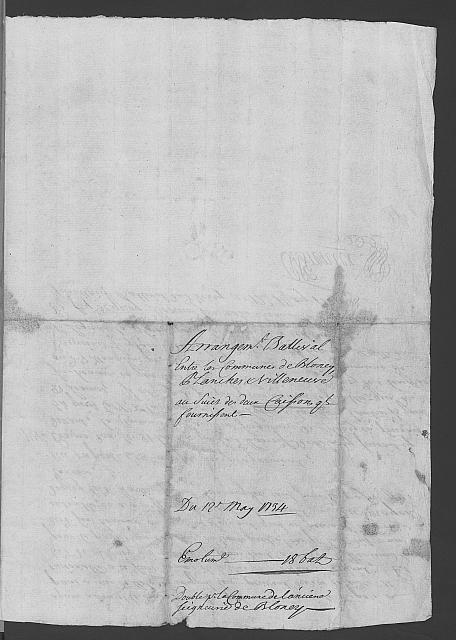 Arrangemt. Ballival
Entre les Communes de Bloney,
Planches & Villeneuve
au Sujet des deux Caissons qls
fournissent —
Du 12e. May 1734
Emolumt. ——— 18 batz
Double p. la Commune de l'ancienne
Seigneurie de Bloney —